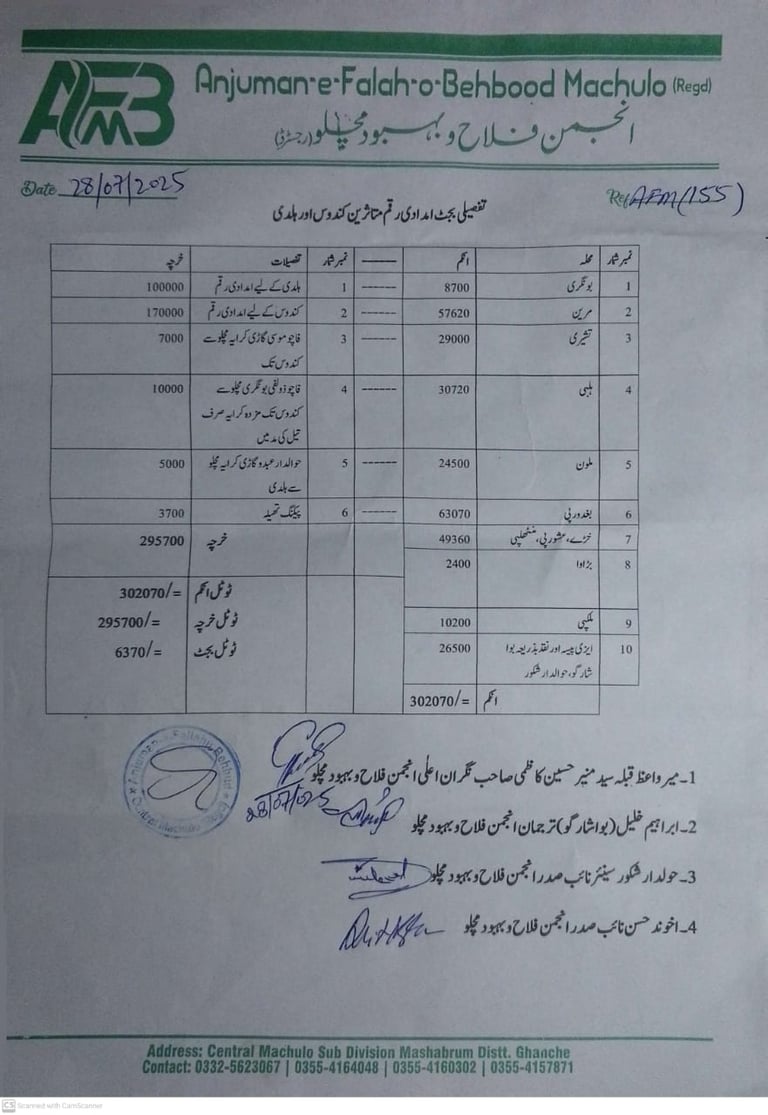 AFMB
Anjuman-e-Falah-o-Behbood Machulo (Regd)
انجمن فلاح و بہبود مچلو (رجسٹرڈ)
Date 28/07/2025
Ref AFM(155)
تفصیلی بجٹ امدادی رقم متاثرین کندوس اور ہلدی
نمبر شمار محلہ انکم ------ نمبر شمار تفصیلات خرچہ
1 بونگری 8700 ------ 1 ہلدی کے لیے امدادی رقم 100000
2 مرین 57620 ------ 2 کندوس کے لیے امدادی رقم 170000
3 تشیری 29000 ------ 3 قاچو موسی گاڑی کرایہ مچلو سے 7000
کندوس تک
4 بلپی 30720 ------ 4 قاچو ذولفی بونگری مچلو سے 10000
کندوس تک مزدہ کرایہ صرف
تیل کی مد میں
5 ملون 24500 ------ 5 حوالدار عبدو گاڑی کرایہ مچلو 5000
سے ہلدی
6 بغدورپی 63070 ------ 6 پیکنگ تھیلہ 3700
7 خڑے، مشورپی، 49360 خرچہ 295700
8 بڑاوا 2400
ٹوٹل انکم 302070/=
9 ملکپی 10200 ٹوٹل خرچہ 295700/=
10 ایزی پیسہ اور نقد بذریعہ بوا 26500 ٹوٹل بجٹ 6370/=
شارگو، حوالدار شکور
انکم 302070/=
1۔ میر واعظ قبلہ سید منیر حسین کاظمی صاحب نگران اعلٰی انجمن فلاح و بہبود مچلو
28/07/2025
2۔ ابراہیم خلیل (بوا شارگو) ترجمان انجمن فلاح و بہبود مچلو
3۔ حولدار شکور سینئر نائب صدر انجمن فلاح و بہبود مچلو
4۔ اخوند حسن نائب صدر انجمن فلاح و بہبود مچلو
Address: Central Machulo Sub Division Mashabrum Distt. Ghanche
Contact: 0332-5623067 | 0355-4164048 | 0355-4160302 | 0355-4157871
CS Scanned with CamScanner